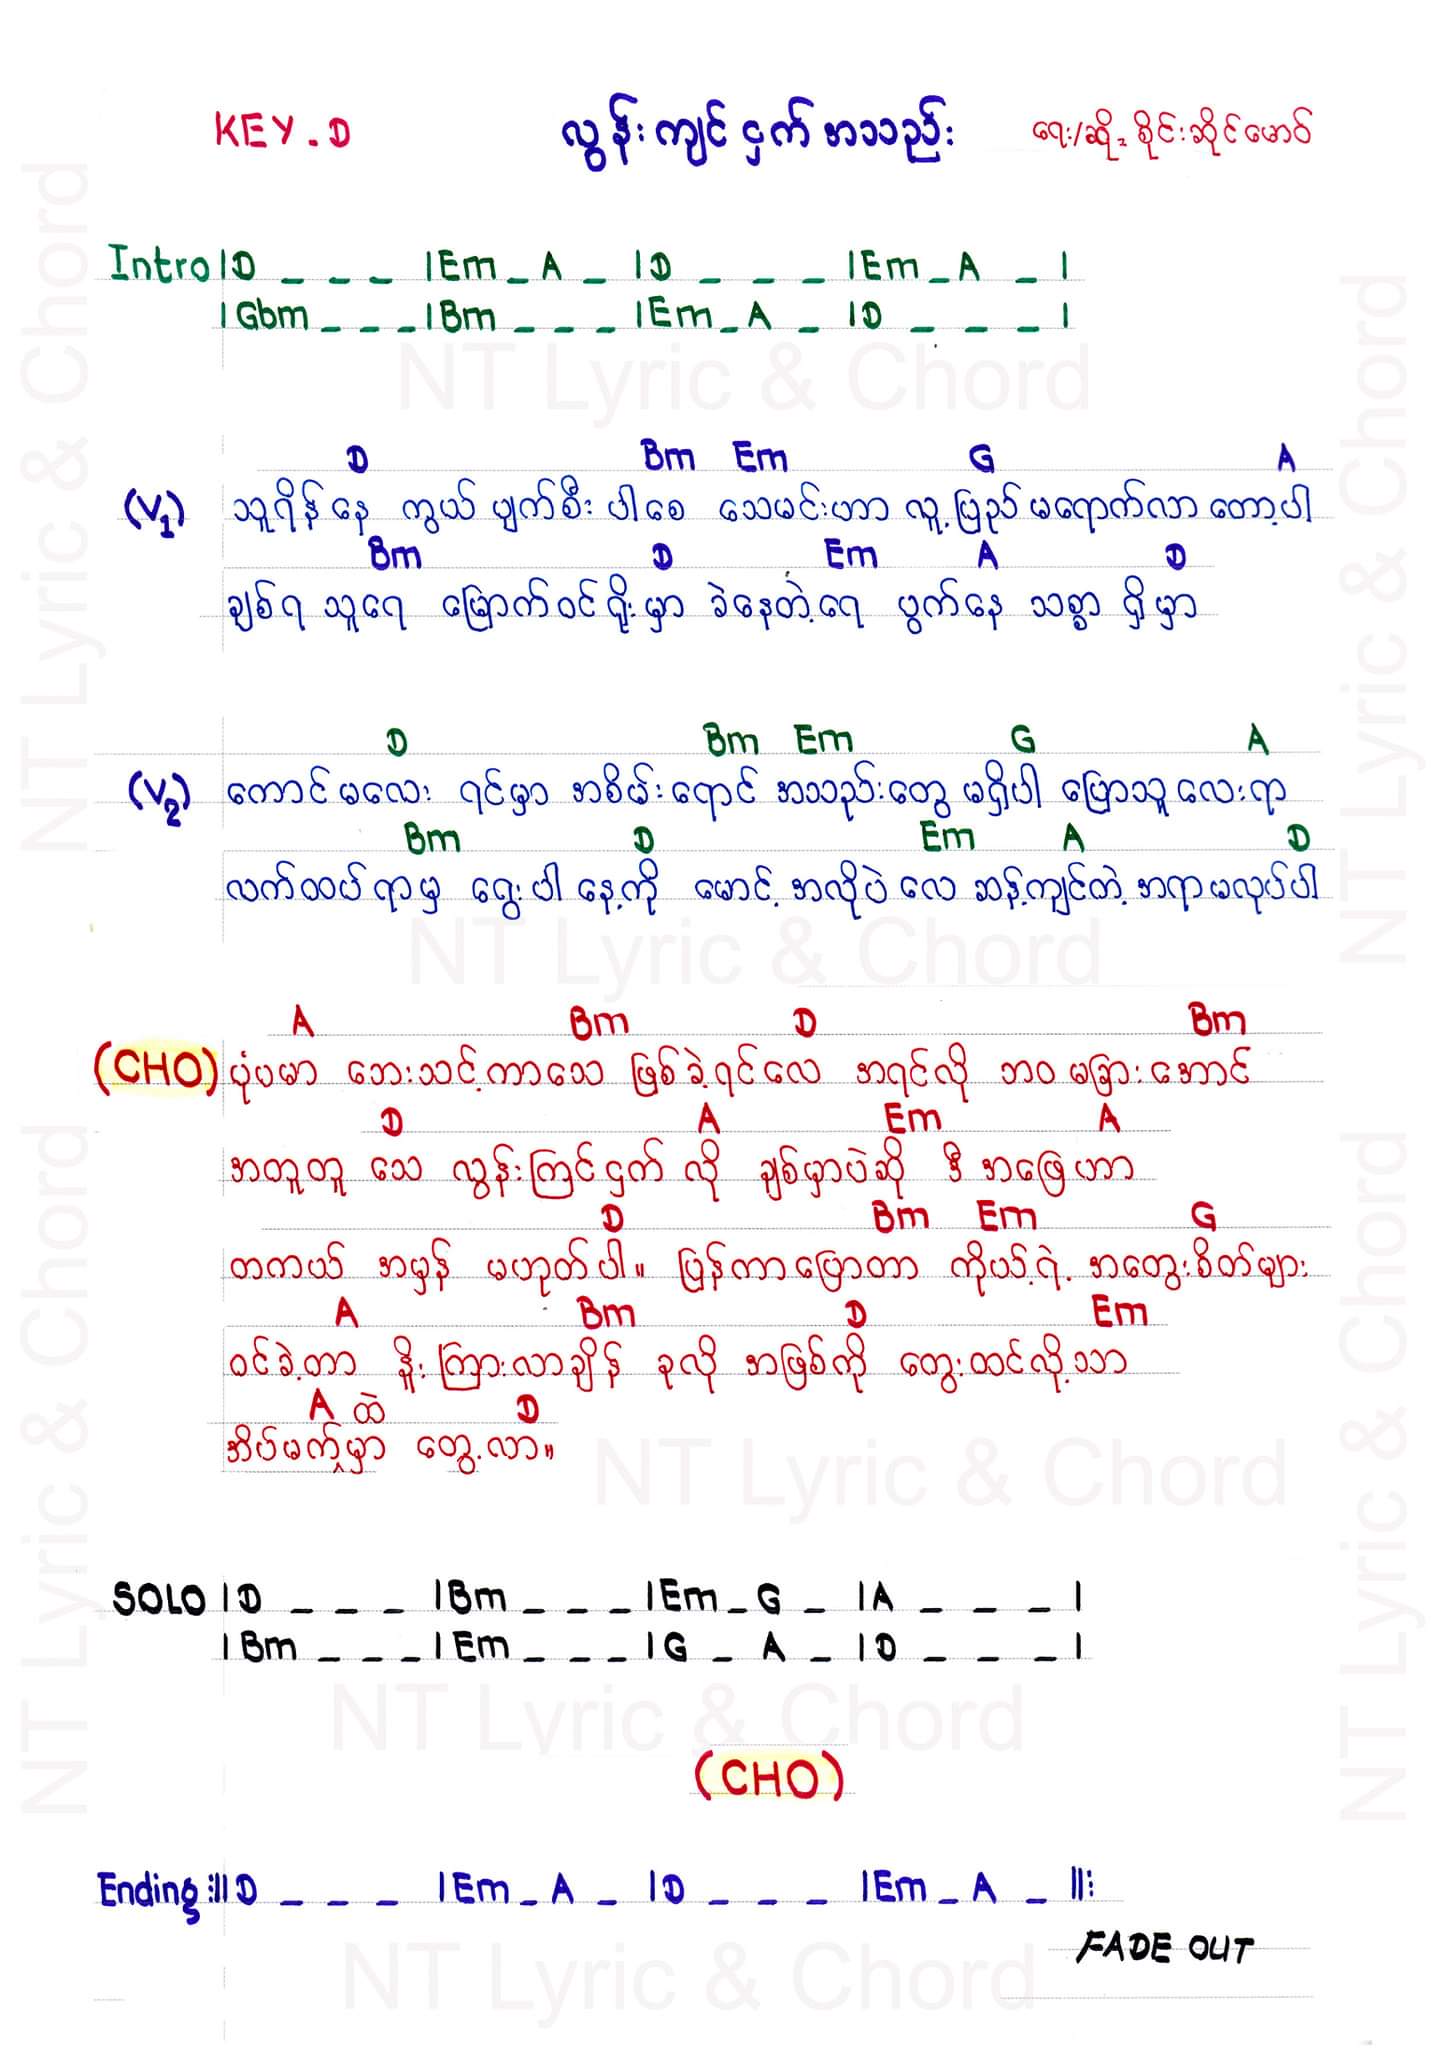 KEY.D လွန်းကျင်ငှက်အသည်း ရေး/ဆို - စိုင်းဆိုင်မောဝ်
Intro |D _ _ _ |Em _ A _ |D _ _ _ |Em _ A _ |
|Gbm _ _ _ |Bm _ _ _ |Em _ A _ |D _ _ _ |
NT Lyric & Chord
D Bm Em G A
(V1) သူရိန်နေ ကွယ် ပျက်စီး ပါစေ သေမင်းဟာ လူ့ပြည် မရောက်လာ တော့ပါ
Bm D Em A D
ချစ်ရ သူရေ မြောက်ဝင်ရိုးမှာ ခဲနေတဲ့ရေ ပွက်နေ သစ္စာ ရှိမှာ
D Bm Em G A
(V2) ကောင်မလေး ရင်မှာ အစိမ်းရောင် အသည်းတွေ မရှိပါ ပြောသူလေးရာ
Bm D Em A D
လက်ထပ်ရာမှ ရွေးပါ နေ့ကို မောင့် အလိုပဲ လေ ဆန့်ကျင်တဲ့ အရာမလုပ်ပါ
NT Lyric & Chord
A Bm D Bm
(CHO) ပုံပမာ ဘေးသင့်ကာသေ ဖြစ်ခဲ့ရင်လေ အရင်လို ဘဝ မခြားအောင်
D A Em A
အတူတူ သေ လွန်းကြင်ငှက် လို ချစ်မှာပဲဆို ဒီ အဖြေဟာ
D Bm Em G
တကယ် အမှန် မဟုတ်ပါ။ ပြန်ကာပြောတာ ကိုယ့်ရဲ့ အတွေးစိတ်များ
A Bm D Em
ဝင်ခဲ့တာ နှိုးကြားလာချိန် ခုလို အဖြစ်ကို တွေးထင်လို့သာ
A ထဲ D
အိပ်မက်မှာ တွေ့လာ။
NT Lyric & Chord
SOLO |D _ _ _ |Bm _ _ _ |Em _ G _ |A _ _ _ |
|Bm _ _ _ |Em _ _ _ |G _ A _ |D _ _ _ |
NT Lyric & Chord
(CHO)
Ending :|| D _ _ _ |Em _ A _ |D _ _ _ |Em _ A _ ||:
FADE OUT
NT Lyric & Chord
NT Lyric & Chord
NT Lyric & Chord
NT Lyric & Chord
NT Lyric & Chord